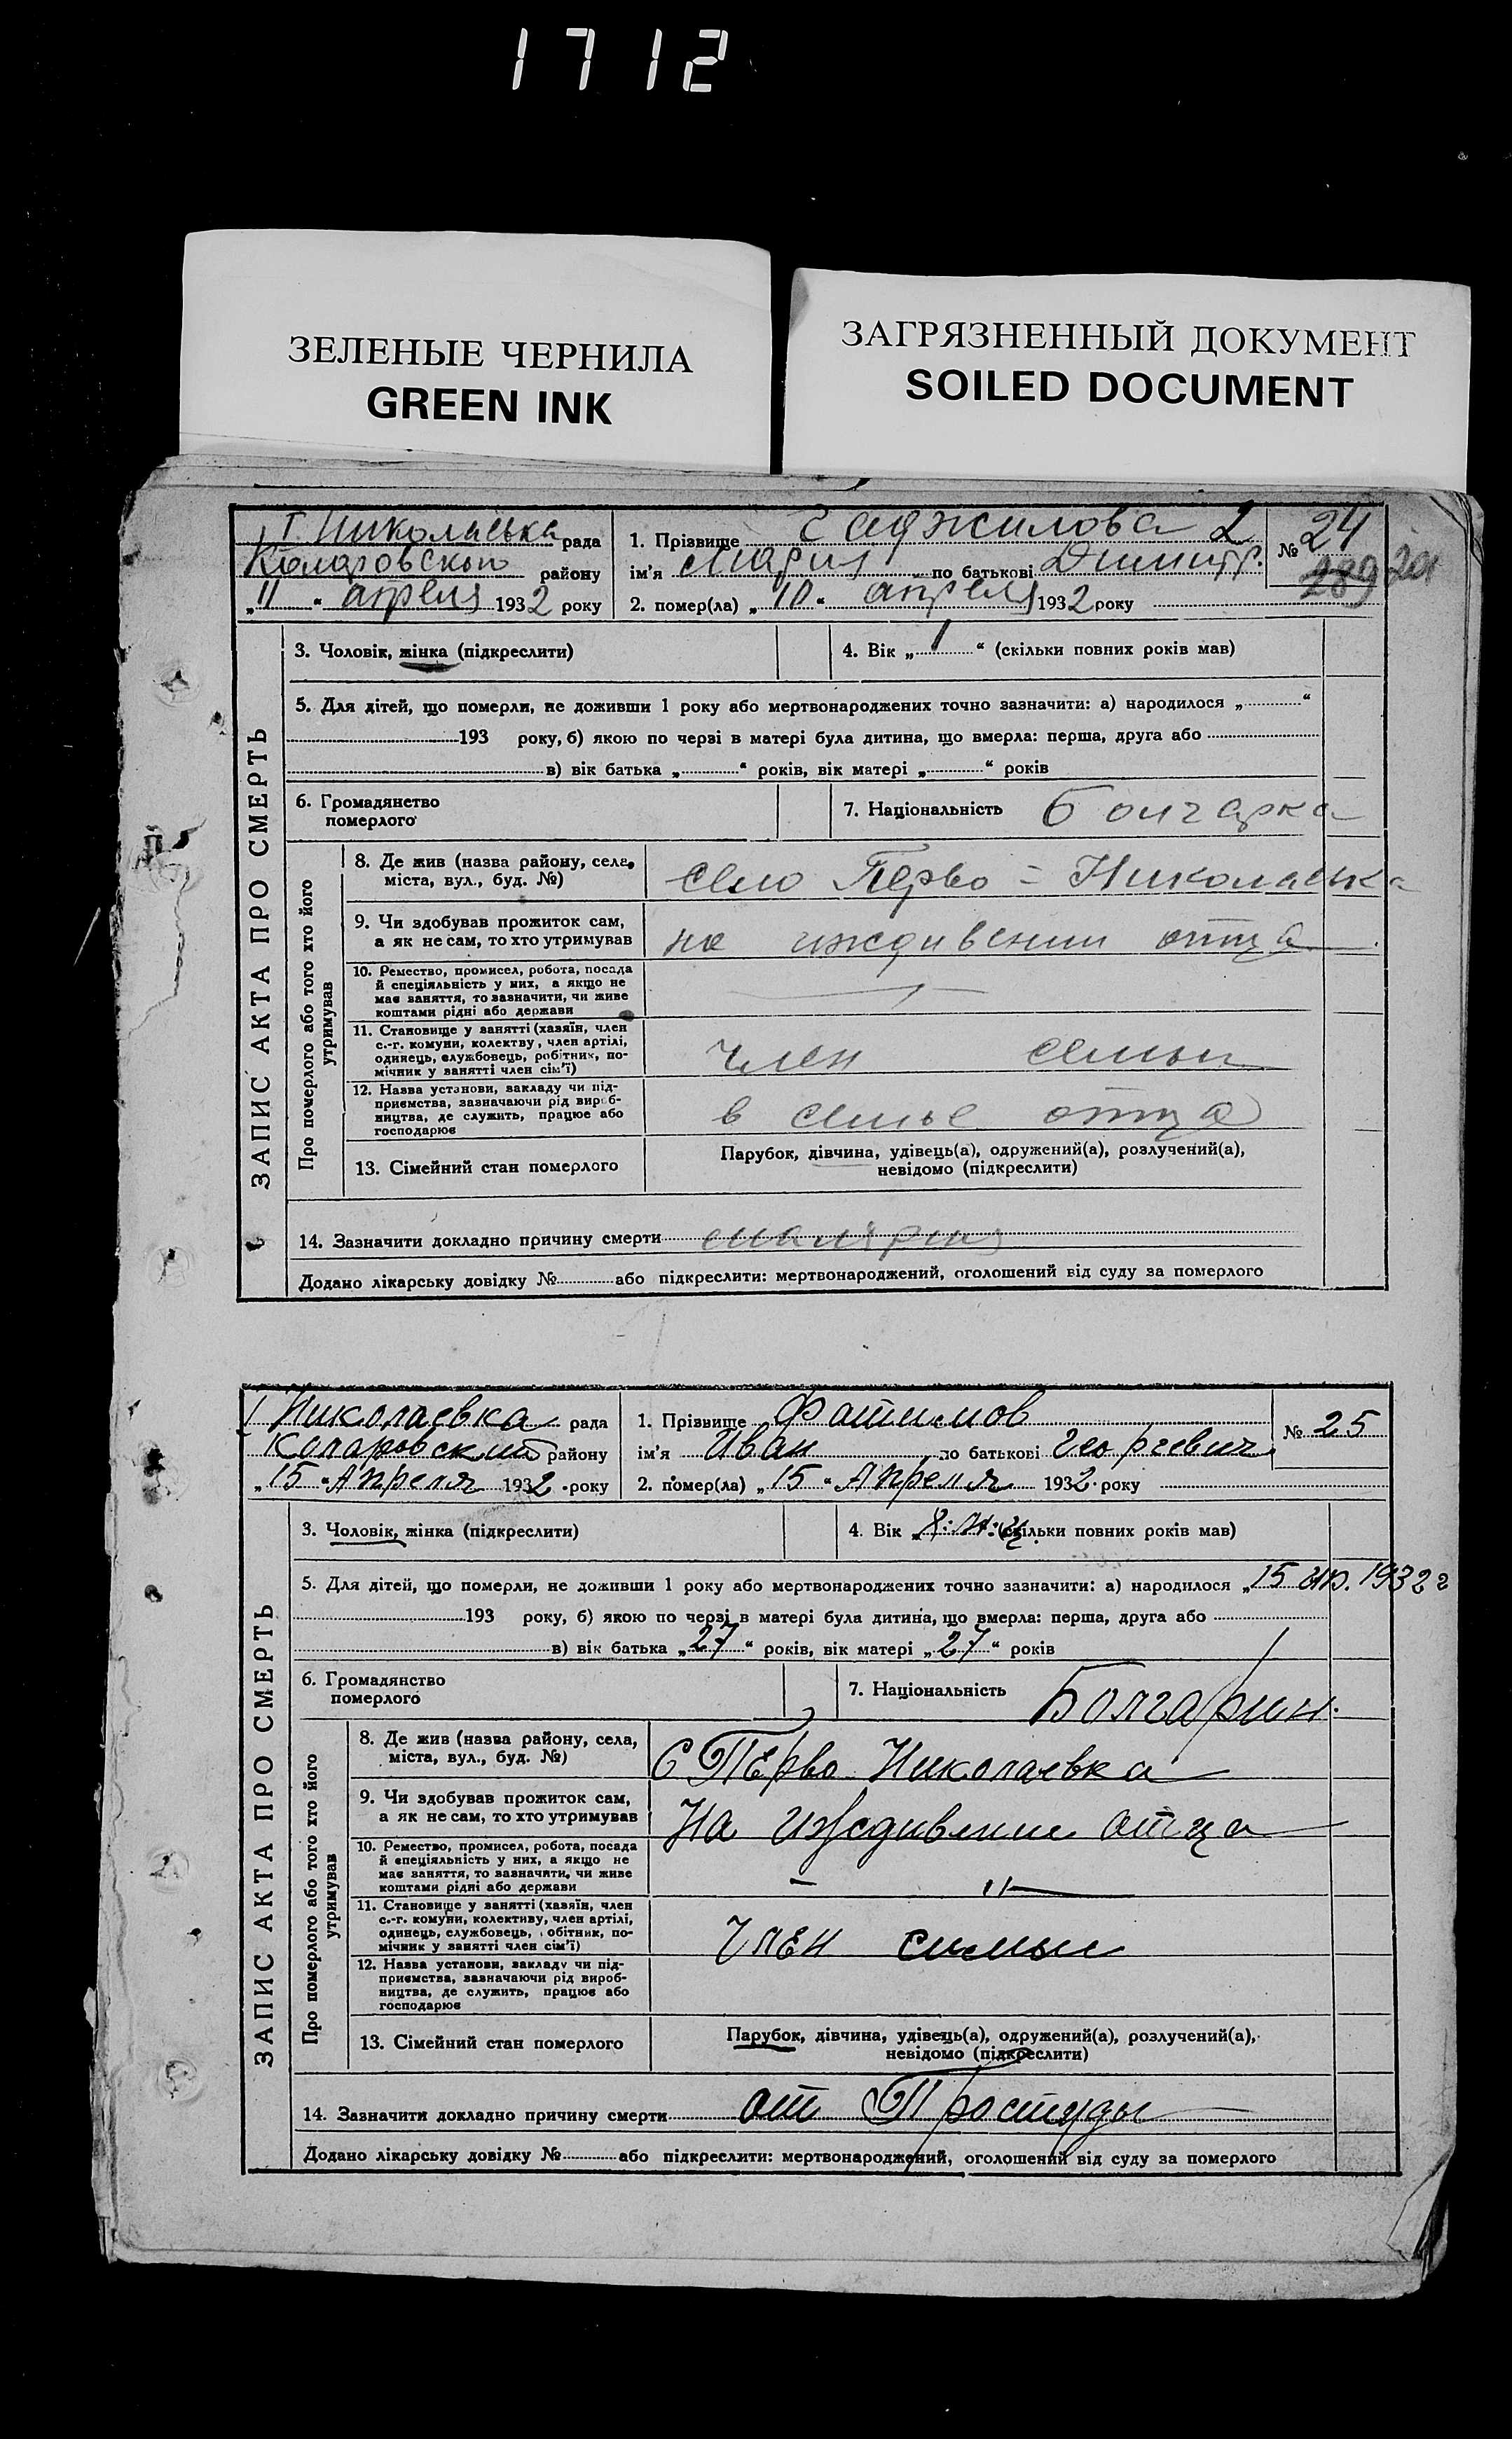 1712
ЗЕЛЕНЫЕ ЧЕРНИЛА
GREEN INK
ЗАГРЯЗНЕННЫЙ ДОКУМЕНТ
SOILED DOCUMENT
ЗАПИС АКТА ПРО СМЕРТЬ
I Николаевка рада
Коларовского району
„11“ апреля 1932 року
1. Прізвище Гаджилова
ім'я Мария по батькові Димитр.
2. помер(ла) „10“ апреля 1932 року
№ 24
289
3. Чоловік, жінка (підкреслити)
4. Вік „1“ (скільки повних років мав)
5. Для дітей, що померли, не доживши 1 року або мертвонароджених точно зазначити: а) народилося „ “
193 року, б) якою по черзі в матері була дитина, що вмерла: перша, друга або
в) вік батька „ “ років, вік матері „ “ років
6. Громадянство
померлого
7. Національність Болгарка
Про померлого або того хто його
утримував
8. Де жив (назва району, села,
міста, вул., буд. №)
село Перво=Николаевка
9. Чи здобував прожиток сам,
а як не сам, то хто утримував
на иждивении отца
10. Ремество, промисел, робота, посада
й спеціяльність у них, а якщо не
має заняття, то зазначити, чи живе
коштами рідні або держави
11. Становище у занятті (хазяїн, член
с.-г. комуни, колектву, член артілі,
одинець, службовець, робітник, по-
мічник у занятті член сім'ї)
член семьи
12. Назва установи, закладу чи під-
приємства, зазначаючи рід вироб-
ництва, де служить, працює або
господарює
в семье отца
13. Сімейний стан померлого
Парубок, дівчина, удівець(а), одружений(а), розлучений(а),
невідомо (підкреслити)
14. Зазначити докладно причину смерти малярия
Додано лікарську довідку № або підкреслити: мертвонароджений, оголошений від суду за померлого
ЗАПИС АКТА ПРО СМЕРТЬ
I Николаевка рада
Коларовский району
„15“ Апреля 1932 року
1. Прізвище Фатимов
ім'я Иван по батькові Георгевич
2. помер(ла) „15“ Апреля 1932 року
№ 25
3. Чоловік, жінка (підкреслити)
4. Вік (скільки повних років мав)
5. Для дітей, що померли, не доживши 1 року або мертвонароджених точно зазначити: а) народилося „15 ап. 1932 г
193 року, б) якою по черзі в матері була дитина, що вмерла: перша, друга або
в) вік батька „27“ років, вік матері „27“ років
6. Громадянство
померлого
7. Національність Болгарин.
Про померлого або того хто його
утримував
8. Де жив (назва району, села,
міста, вул., буд. №)
С Перво Николаевка
9. Чи здобував прожиток сам,
а як не сам, то хто утримував
На иждивлние отца
10. Ремество, промисел, робота, посада
й спеціяльність у них, а якщо не
має заняття, то зазначити, чи живе
коштами рідні або держави
– " –
11. Становище у занятті (хазяїн, член
с.-г. комуни, колективу, член артілі,
одинець, службовець, обітник, по-
мічник у занятті член сім'ї)
Член симьи
12. Назва установи, закладу чи під-
приємства, зазначаючи рід вироб-
ництва, де служить, працює або
господарює
13. Сімейний стан померлого
Парубок, дівчина, удівець(а), одружений(а), розлучений(а),
невідомо (підкреслити)
14. Зазначити докладно причину смерти от Простуды
Додано лікарську довідку № або підкреслити: мертвонароджений, оголошений від суду за померлого